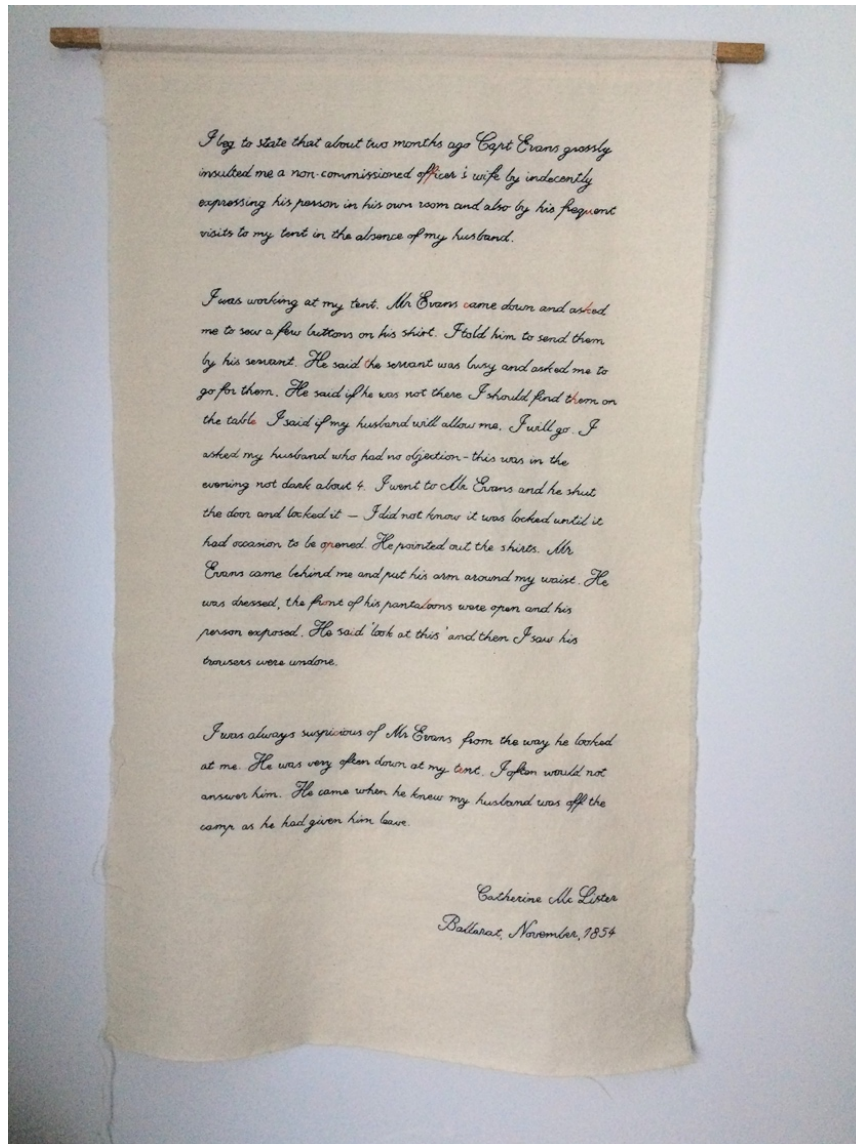 I beg to state that about two months ago Capt Evans grossly
insulted me a non-commissioned officer's wife by indecently
expressing his person in his own room and also by his frequent
visits to my tent in the absence of my husband.
I was working at my tent. Mr Evans came down and asked
me to sew a few buttons on his shirt. I told him to send them
by his servant. He said the servant was busy and asked me to
go for them. He said if he was not there I should find them on
the table I said if my husband will allow me, I will go. I
asked my husband who had no objection - this was in the
evening not dark about 4. I went to Mr Evans and he shut
the door and locked it — I did not know it was locked until it
had occasion to be opened. He pointed out the shirts. Mr
Evans came behind me and put his arm around my waist. He
was dressed, the front of his pantaloons were open and his
person exposed. He said 'look at this' and then I saw his
trousers were undone.
I was always suspicious of Mr Evans from the way he looked
at me. He was very often down at my tent. I often would not
answer him. He came when he knew my husband was off the
camp as he had given him leave.
Catherine Mc Lister
Ballarat, November, 1854